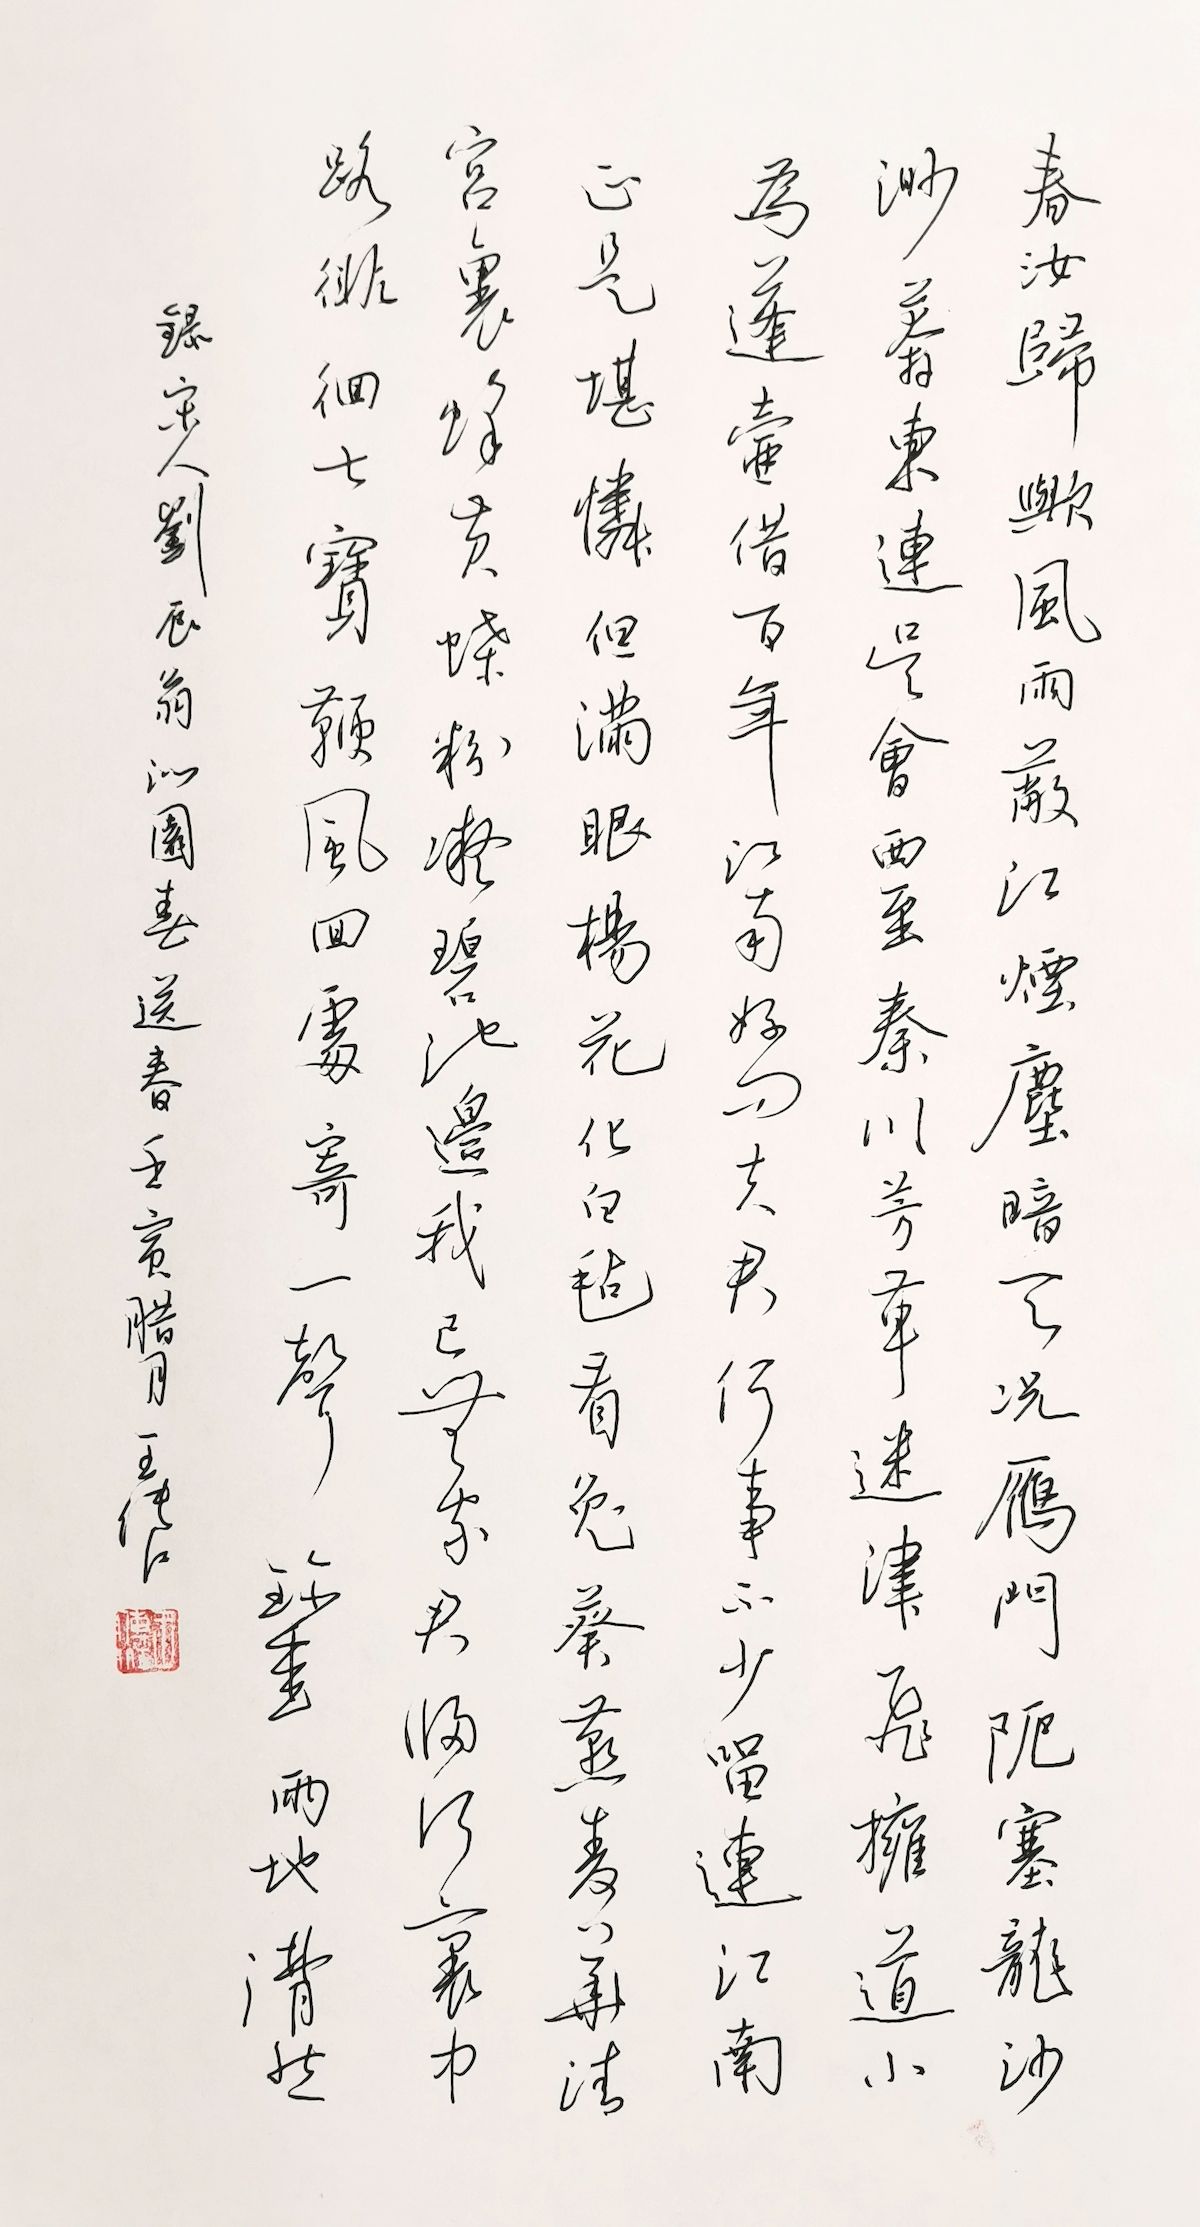 春汝歸歟風雨蔽江煙塵暗天況鴈門阨塞龍沙
渺莽東連吳會西至秦川芳草迷津飛擁道小
為蓬壺借百年江南好問夫君何事不少留連江南
正是堪憐但滿眼楊花化白毡看兔葵燕麥華清
宮裏蜂黃蝶粉凝碧池邊我已無家君歸何裏中
路徘徊七寶鞭風回處寄一聲珍重兩地潸然
錄宋人劉辰翁沁園春送春壬寅臘月王傳江